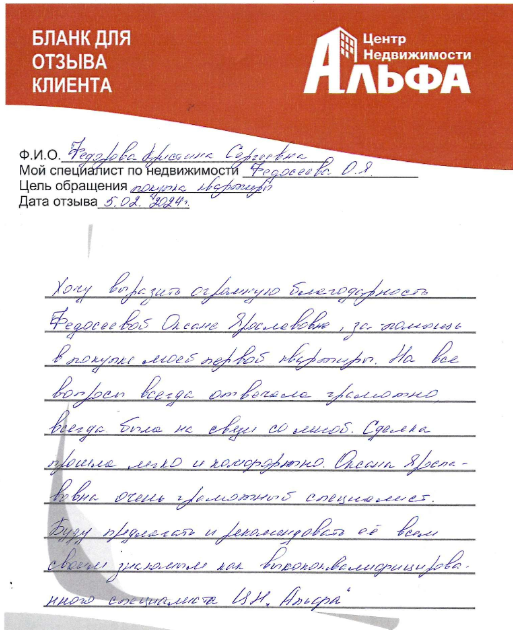 БЛАНК ДЛЯ
ОТЗЫВА
КЛИЕНТА
Центр
Недвижимости
АЛЬФА
Ф.И.О. Федорова Кристина Сергеевна
Мой специалист по недвижимости Федосеева О.Я.
Цель обращения покупка квартиры
Дата отзыва 5.02.2024г.
Хочу выразить огромную благодарность
Федосеевой Оксане Ярославовне, за помощь
в покупке моей первой квартиры. На все
вопросы всегда отвечала грамотно,
всегда была на связи со мной. Сделка
прошла легко и комфортно. Оксана Яросла-
вовна очень грамотный специалист.
Буду предлагать и рекомендовать её всем
своим знакомым как высококвалифицирова-
нного специалиста ЦН "Альфа"